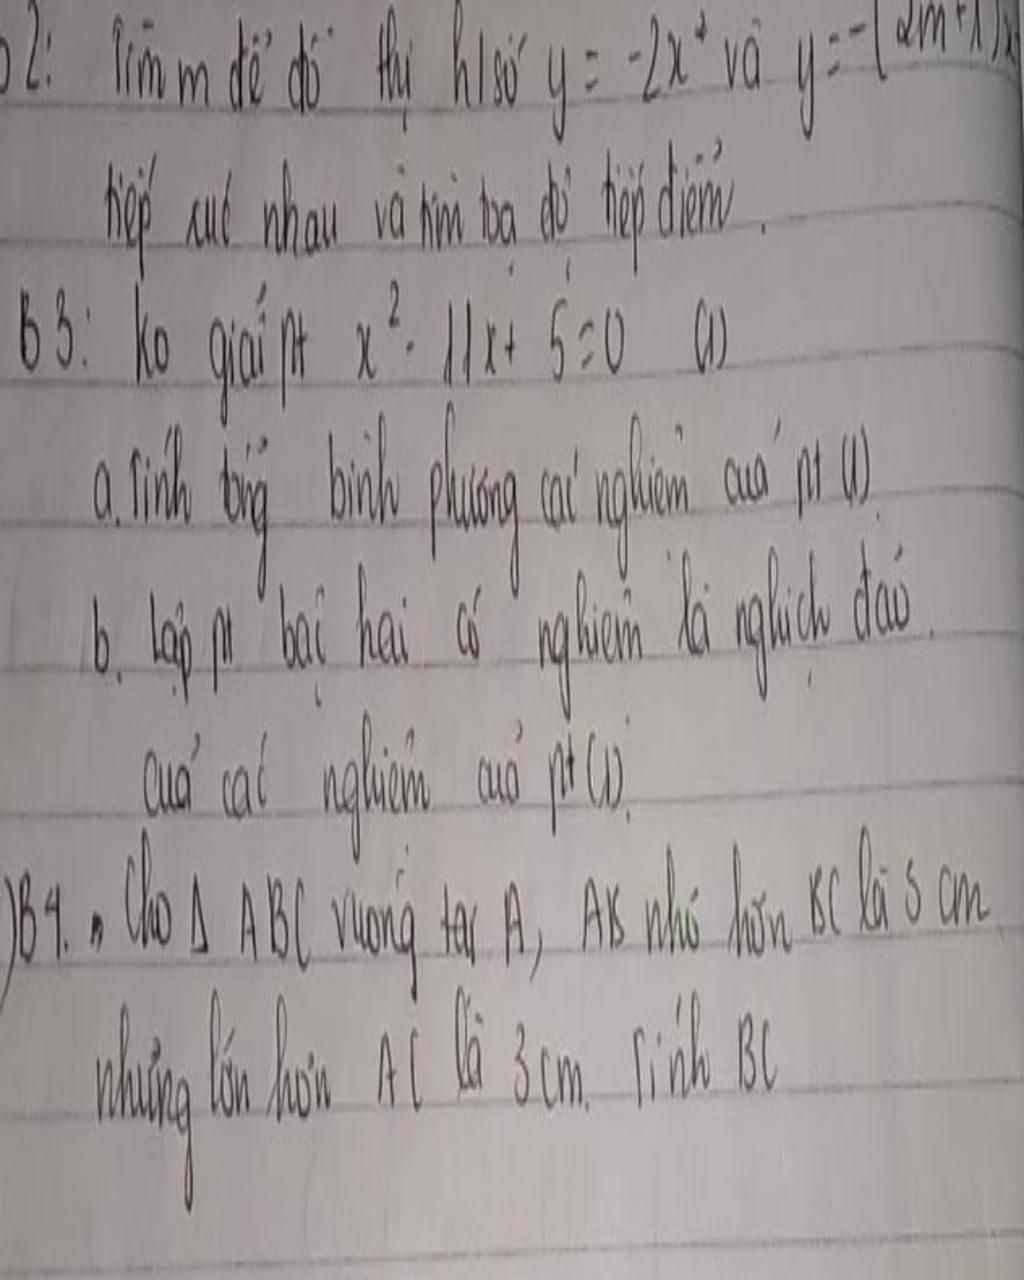 b2: Tìm m để đồ thị h/số y = -2x² và y = -(2m+1)x
tiếp xúc nhau và tìm toạ độ tiếp điểm.
B3: Ko giải pt x² - 11x + 5 = 0 (1)
a. Tính tổng bình phương các nghiệm của pt (1).
b. Lập pt bậc hai có nghiệm là nghịch đảo
của các nghiệm của pt (1).
B4. Cho Δ ABC vuông tại A, AB nhỏ hơn BC là 3 cm
nhưng lớn hơn AC là 3 cm. Tính BC